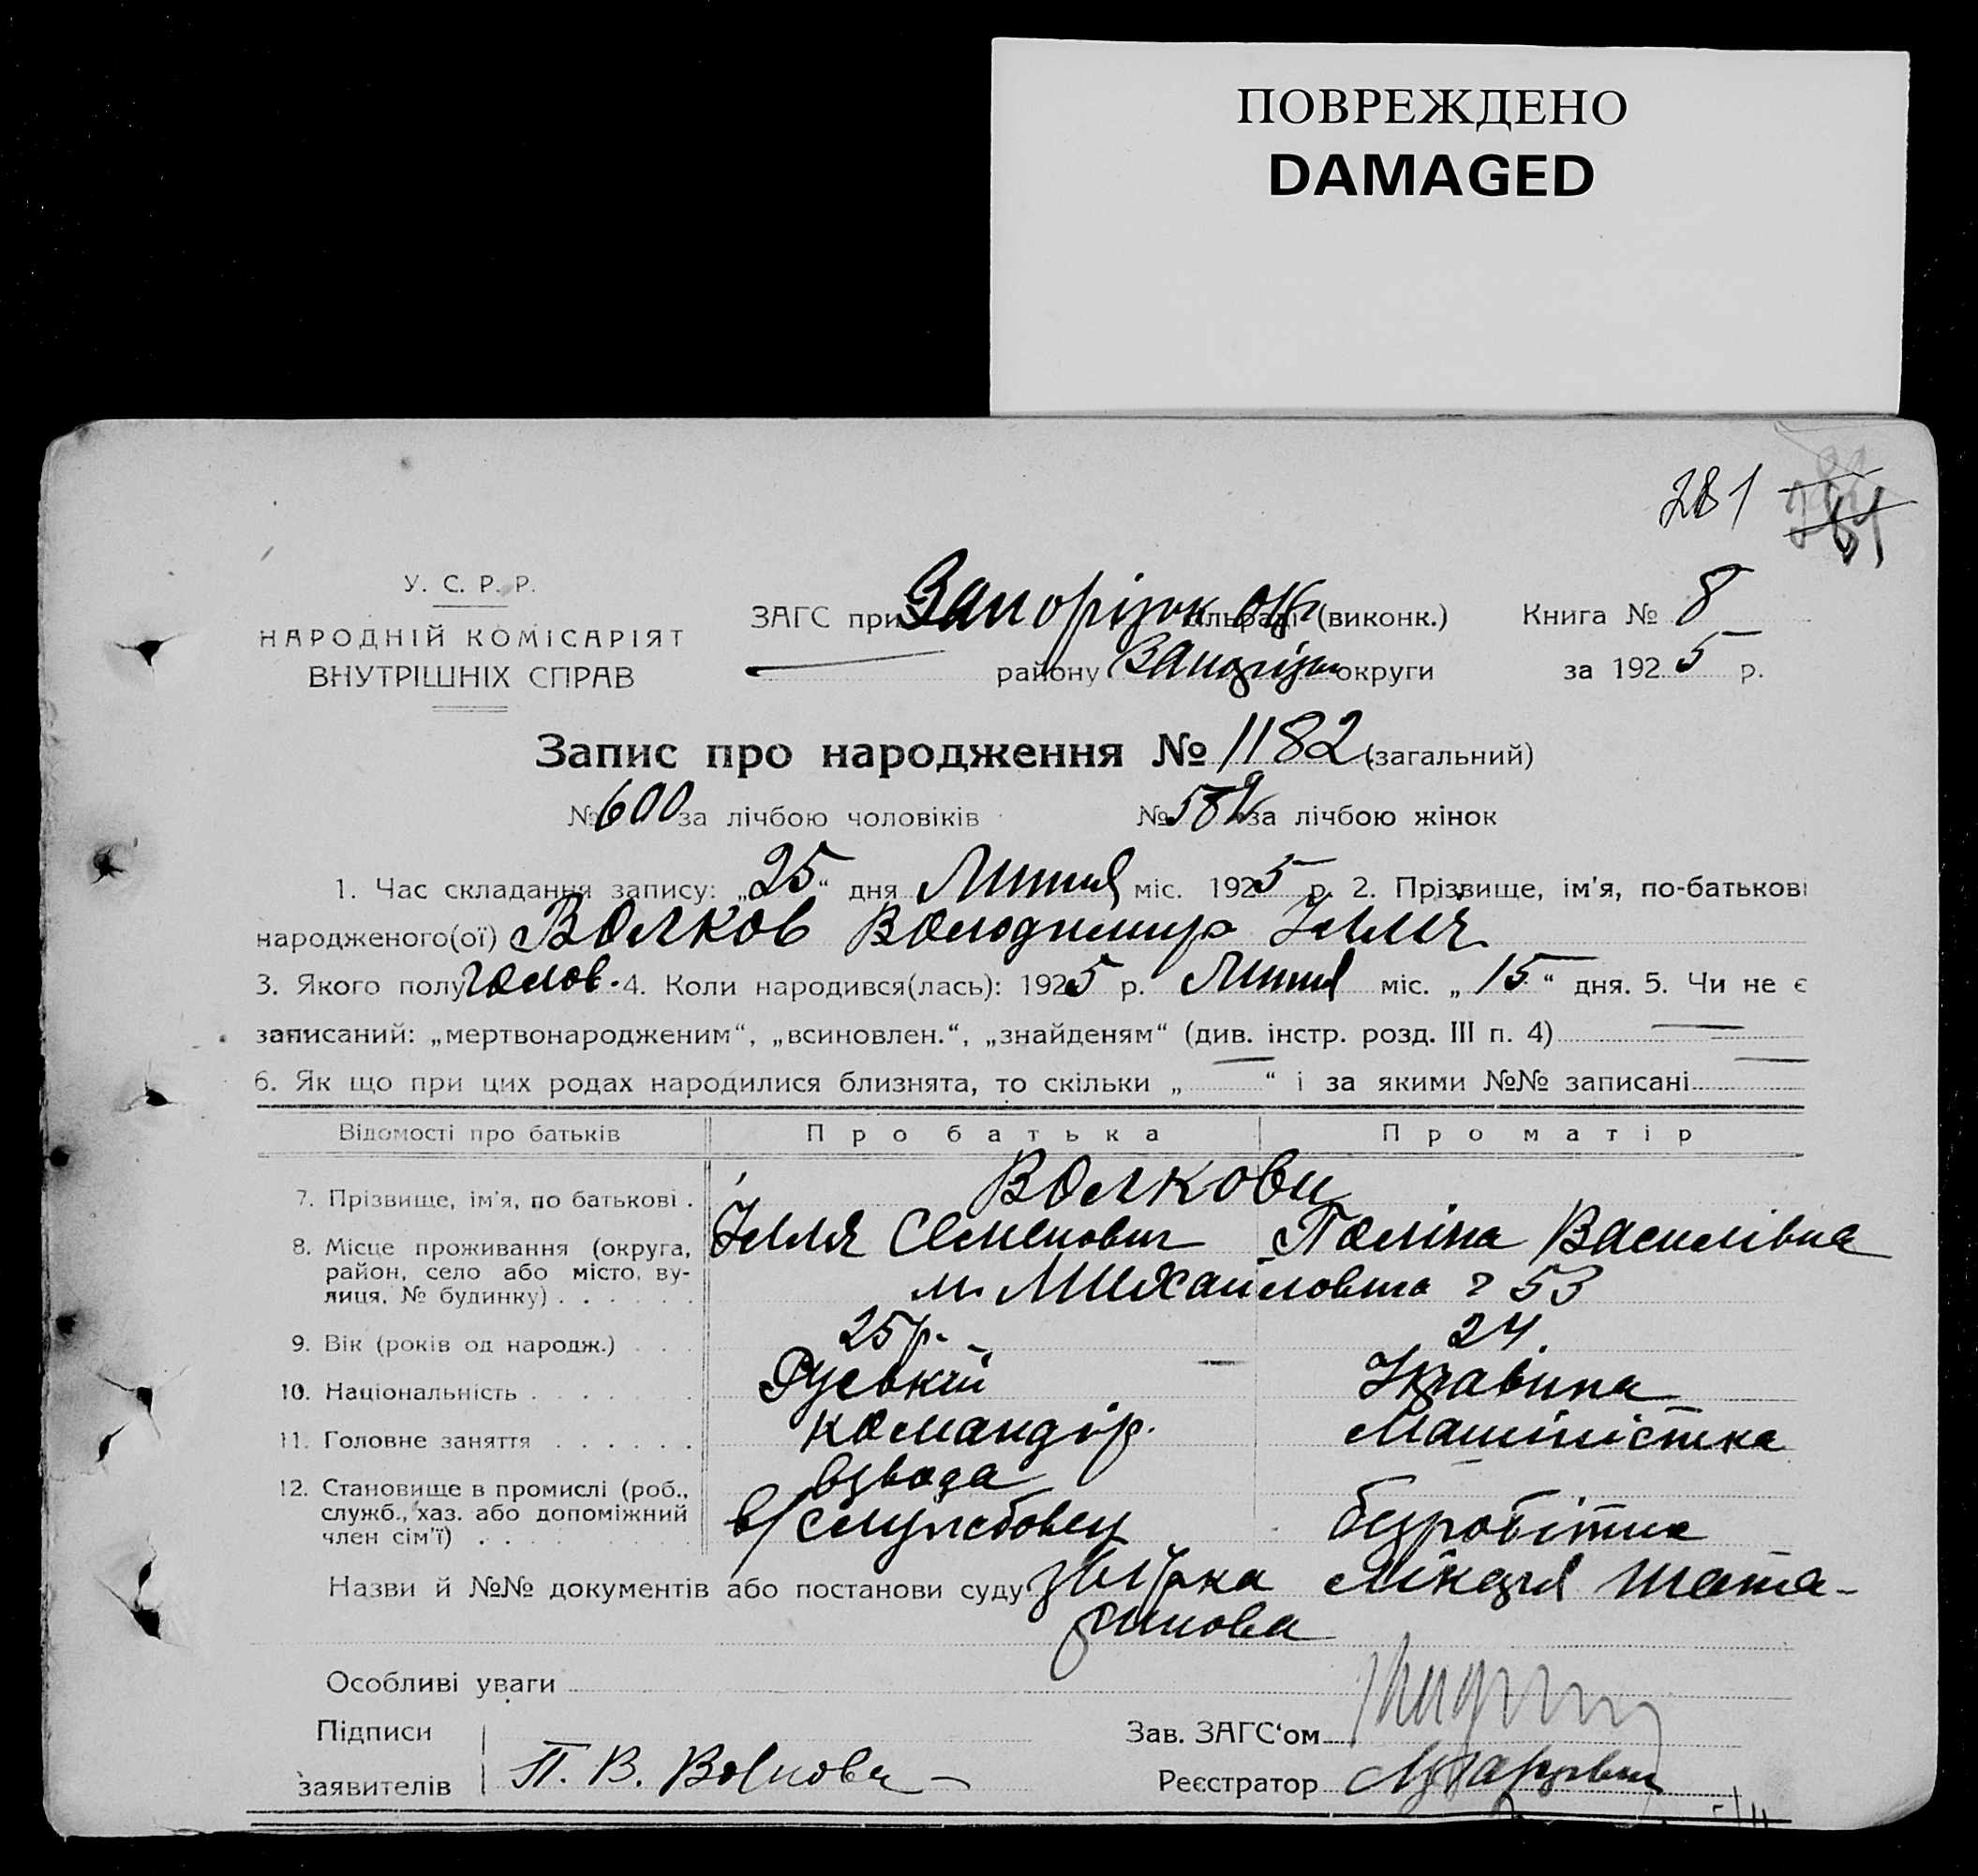 ПОВРЕЖДЕНО
DAMAGED
281
У. С. Р. Р.
НАРОДНІЙ КОМІСАРІЯТ
ВНУТРІШНІХ СПРАВ
ЗАГС при Запорізьк. (виконк.)
району Запоріз округи
Книга № 8
за 1925 р.
Запис про народження № 1182 (загальний)
№ 600 за лічбою чоловіків № 582 за лічбою жінок
1. Час складання запису: „25“ дня Липня міс. 1925 р. 2. Прізвище, ім'я, по-батькові
народженого(ої) Волков Володимир Ілліч
3. Якого полу чолов. 4. Коли народився(лась): 1925 р. Липня міс. „15“ дня. 5. Чи не є
записаний: „мертвонародженим“, „всиновлен.“, „знайденям“ (див. інстр. розд. III п. 4) —
6. Як що при цих родах народилися близнята, то скільки „—“ і за якими №№ записані —
Відомості про батьків Про батька Про матір
7. Прізвище, ім'я, по батькові . Волкови
Ілля Семенович Поліна Василівна
8. Місце проживання (округа, район, село або місто, вулиця, № будинку) . . . . . м. Михайловська 53
9. Вік (років од народж.) . . . 25 р. 24
10. Національність . . . . . . . Руський Українка
11. Головне заняття . . . . . . командір. взвода Машиністка
12. Становище в промислі (роб., служб., хаз. або допоміжний член сім'ї) . . . . . . . в/службовец безробітна
Назви й №№ документів або постанови суду лікаря Шата-
Особливі уваги
Підписи
заявителів П. В. Волкова
Зав. ЗАГС'ом
Реєстратор